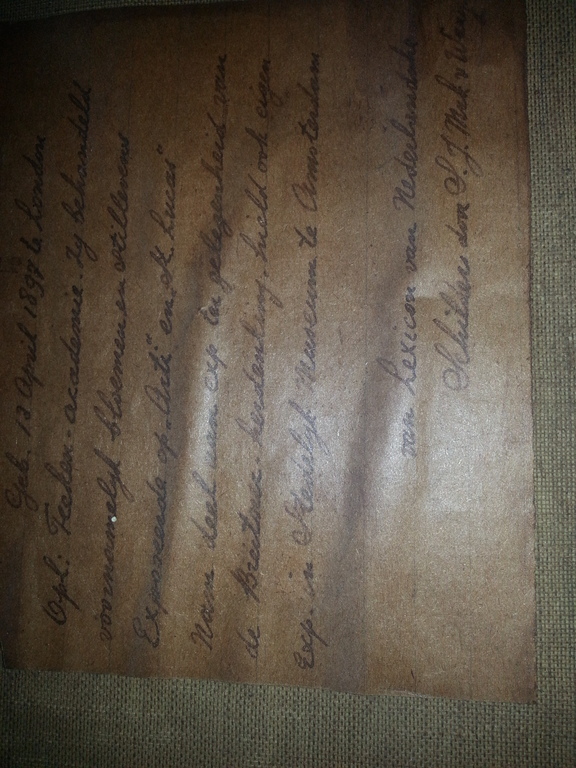 Geb. 12 April 1897 te Londen
Opl: Teeken-academie. Zy behandeld
voornamelyk bloemen en stillevens
Exposeerde op „Arti" en „St. Lucas"
Nam deel aan exp. ter gelegenheid van
de Breitner-herdenking, hield ook eigen
exp. in Stedelyk Museum te Amsterdam
van Lexicon van Nederlandsche
Schilders door S. J. Mak v. Waay